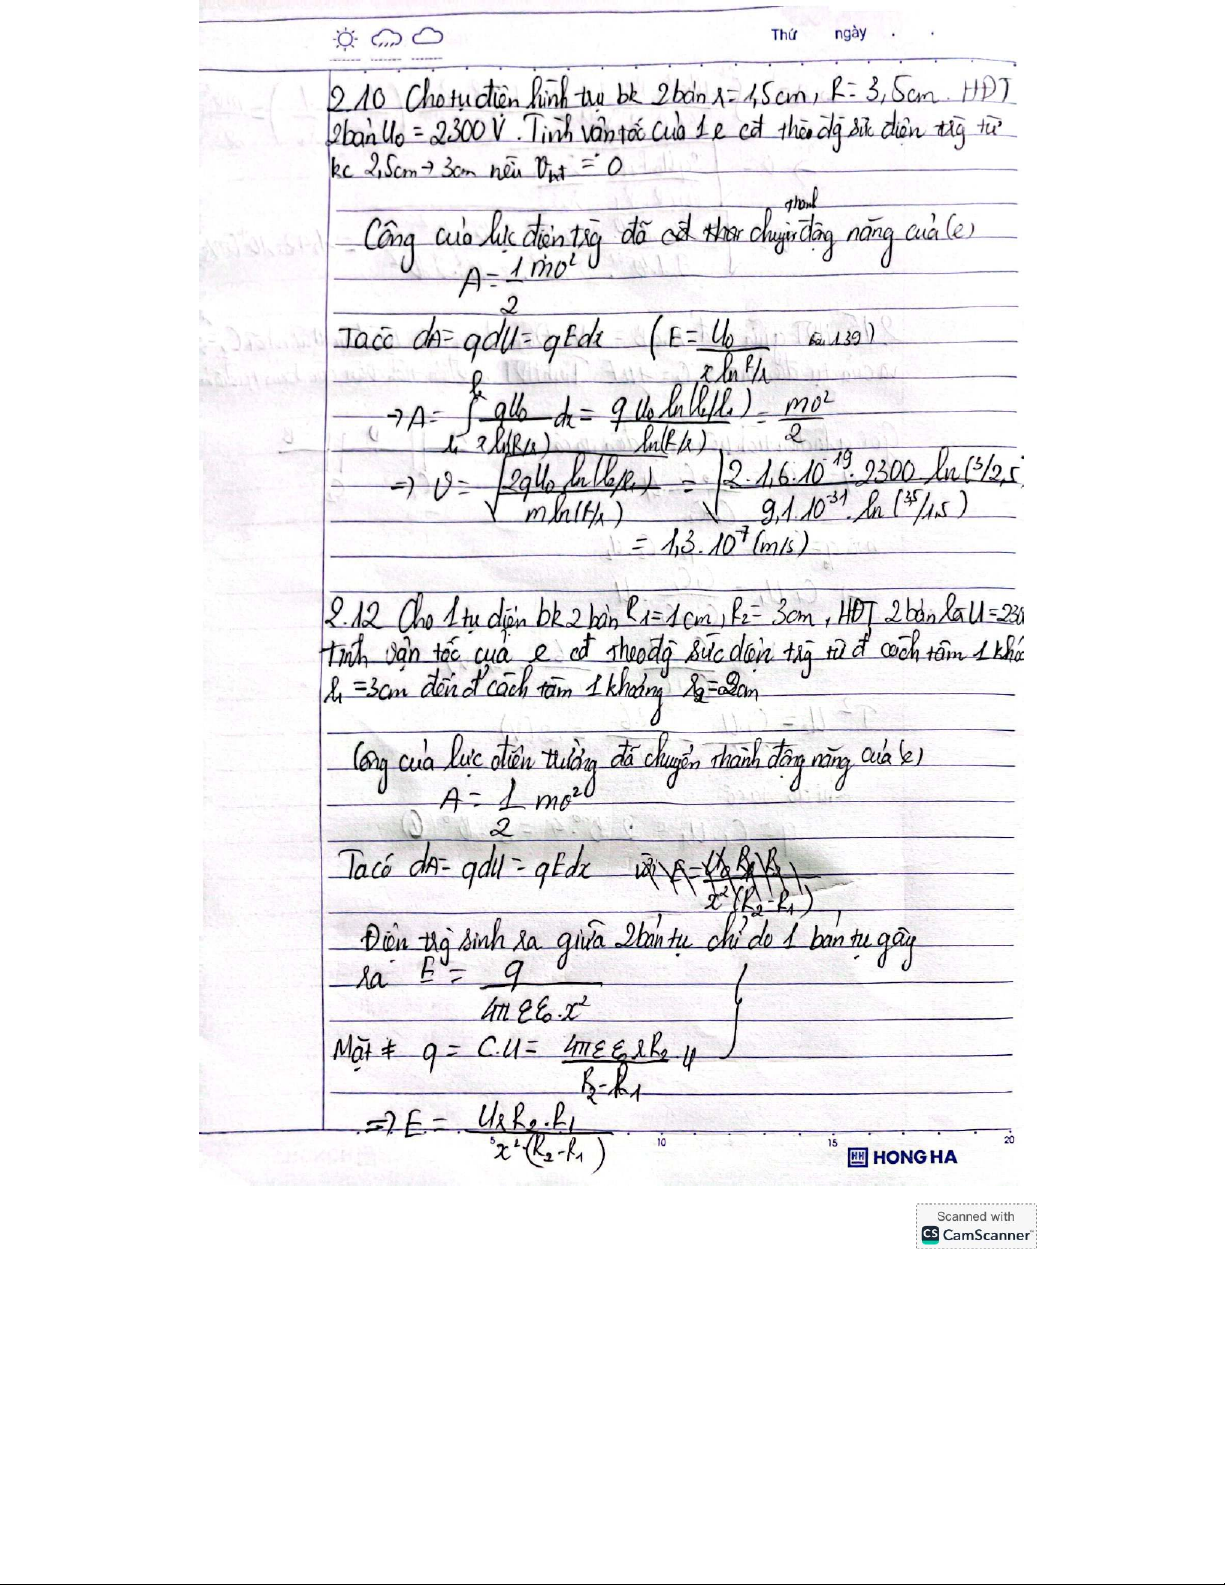 Thứ ngày . .
2.10 Cho tụ điện hình trụ bk 2 bản r = 1,5cm, R = 3,5cm. HĐT
2 bản U0 = 2300 V. Tính vận tốc của 1 e cđ theo đg sức điện trg từ
kc 2,5cm → 3cm nếu vbđ = 0
thành
Công của lực điện trg đã chuyển động năng của (e)
A = 1/2 mv²
Ta có dA = qdU = qEdx (E = U0/(x ln R/r) 1.39)
→ A = ∫ qU0/(x ln(R/r)) dx = q U0 ln(r2/r1)/ln(R/r) = mv²/2
=> v = √(2qU0 ln(r2/r1)/(m ln(R/r))) = √(2.1,6.10^-19.2300 ln(3/2,5)/(9,1.10^-31.ln(3,5/1,5)))
= 1,3.10^7 (m/s)
2.12 Cho 1 tụ điện bk 2 bản R1 = 1cm, R2 = 3cm, HĐT 2 bản là U = 230
Tính vận tốc của e cđ theo đg sức điện trg từ đ cách tâm 1 khoả
r1 = 3cm đến đ cách tâm 1 khoảng r2 = 2cm
Công của lực điện trường đã chuyển thành động năng của (e)
A = 1/2 mv²
Ta có dA = qdU = qEdx
x²(R2-R1)
Điện trg sinh ra giữa 2 bản tụ chỉ do 1 bản tụ gây
ra E = q/(4πεε0.x²)
Mặt ≠ q = C.U = 4πεε0 R R2/(R2-R1) .U
=> E = U R R2.R1/(x².(R2-R1))
10 15 20
HONG HA
Scanned with
CS CamScanner